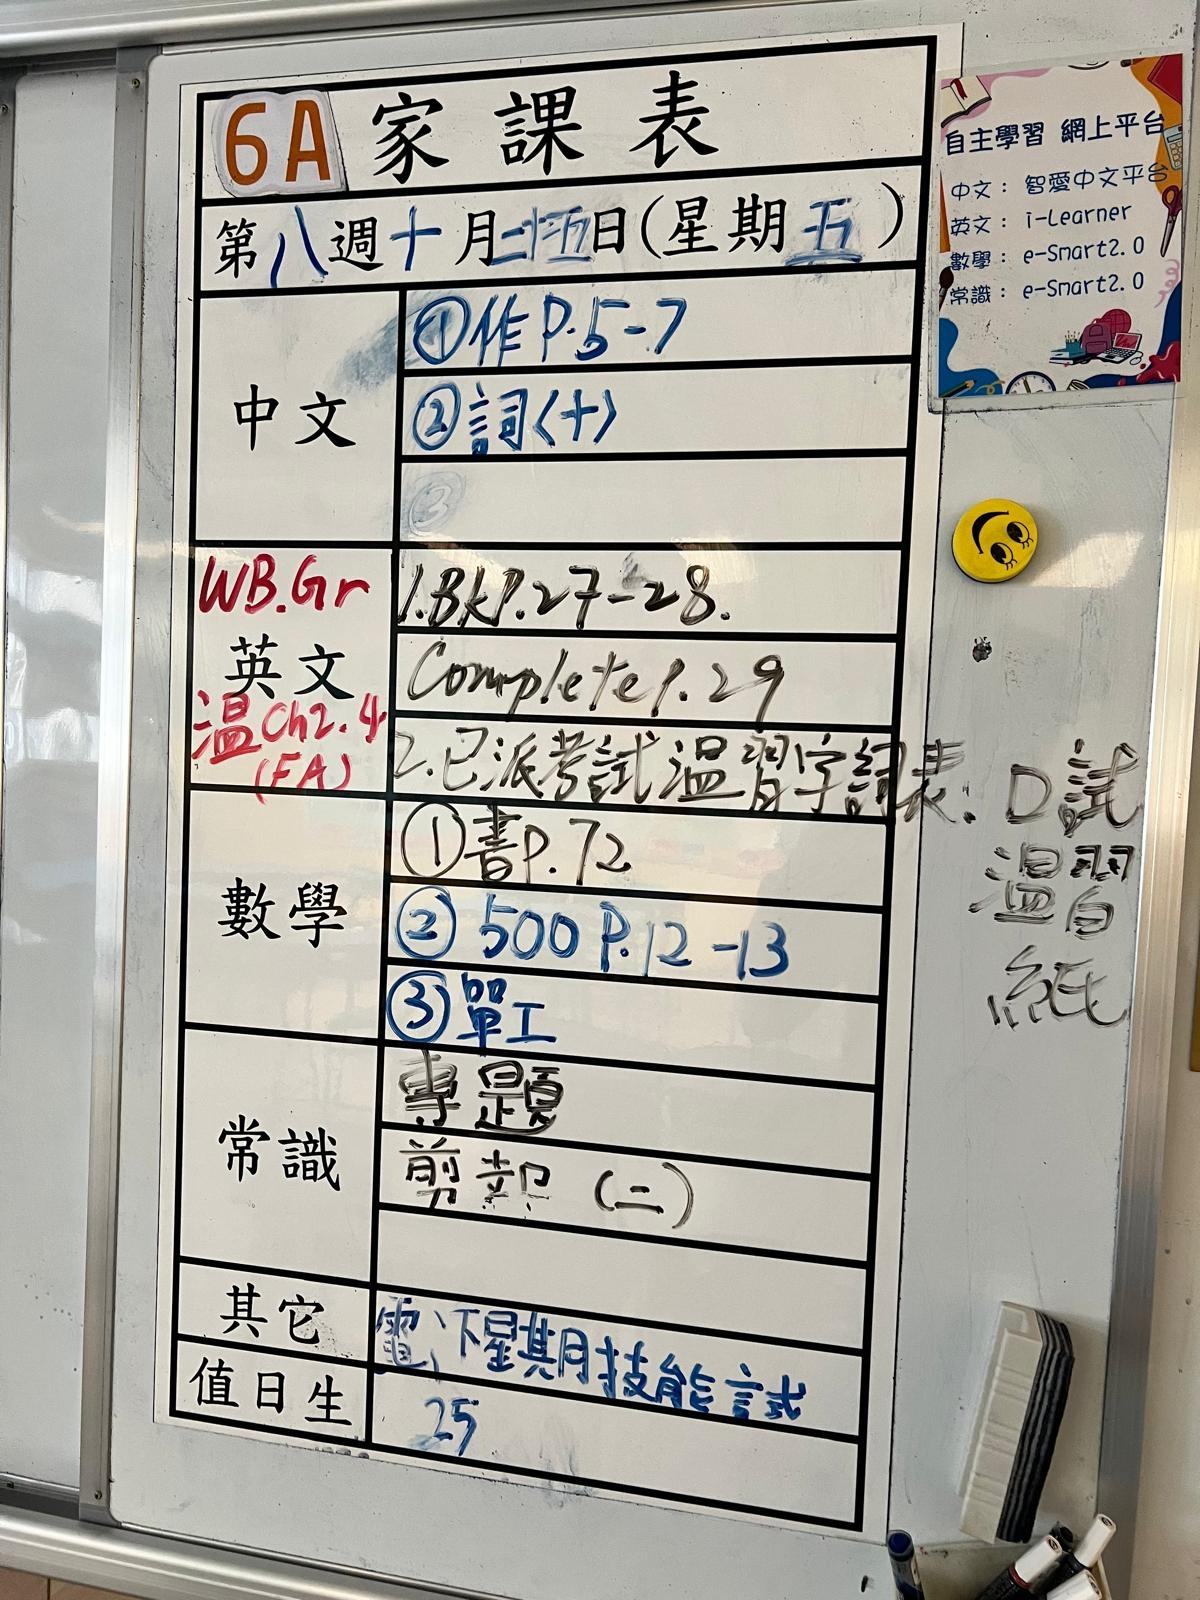 6A 家課表
第八週十月二十五日(星期五)
中文
①作P.5-7
②詞〈十〉
③
WB.Gr
英文
溫Ch2.4
(FA)
1.BkP.27-28.
Complete P.29
2.已派考試溫習字詞表.口試
溫習
紙
數學
①書P.72
②500 P.12-13
③單工
常識
專題
剪報(二)
其它
電、下星期技能試
值日生
25
自主學習 網上平台
中文: 智愛中文平台
英文: i-Learner
數學: e-Smart2.0
常識: e-Smart2.0